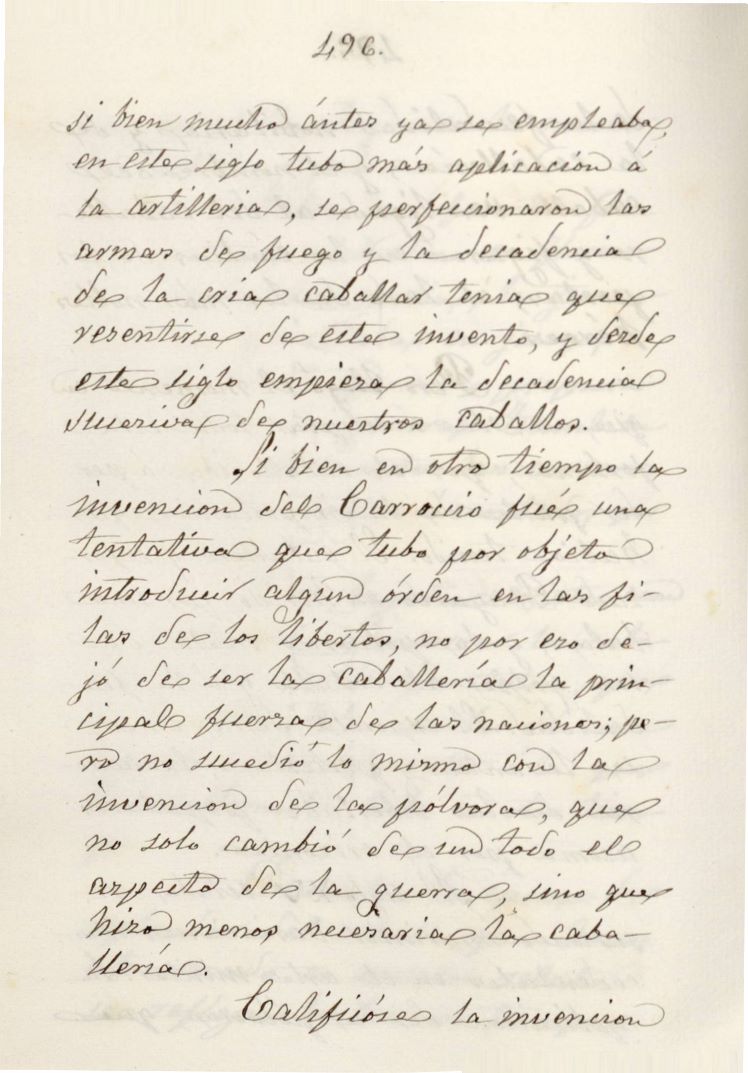 496.
si bien mucho ántes ya se empleaba,
en este siglo tubo más aplicacion á
la artilleria, se perfeccionaron las
armas de fuego y la decadencia
de la cria caballar tenia que
resentirse de este invento, y desde
este siglo empieza la decadencia
sucesiva de nuestros caballos.
Si bien en otro tiempo la
invencion del Carrocio fué una
tentativa que tubo por objeto
introducir algun órden en las fi-
las de los libertos, no por eso de-
jó de ser la caballería la prin-
cipal fuerza de las naciones; pe-
ro no sucedió lo mismo con la
invencion de la pólvora, que
no solo cambió de un todo el
aspecto de la guerra, sino que
hizo menos necesaria la caba-
llería.
Calificóse la invencion